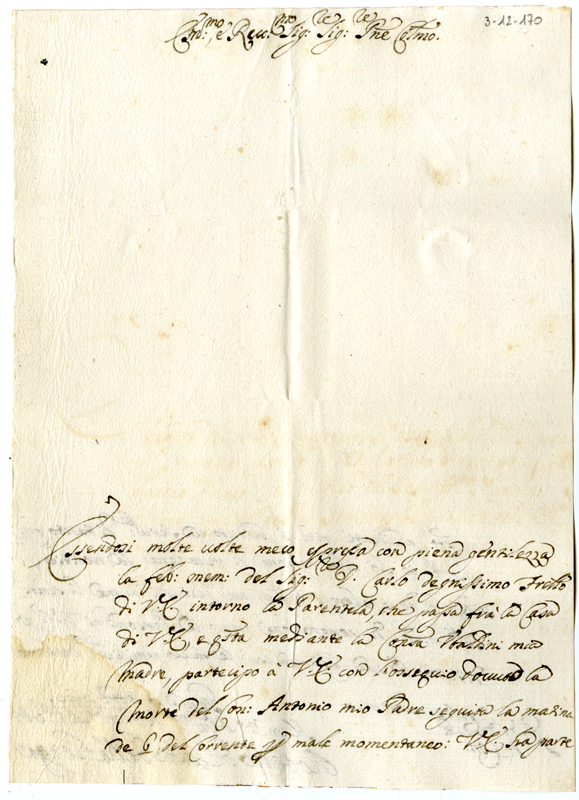 3-12-170
Em:mo, e Rev:mo Sig:re Sig:re Pne Colmo.
Essendosi molte volte meco espressa con piena gentilezza
la feb: mem: del Sig: D. Carlo degnissimo Frello
di V.E. intorno la Parentela, che passa frà la Casa
di V.E, e qsta mediante la Consa mia
Madre, partecipo à V.E. con l'ossequio dovuto la
morte del Con: Antonio mio Padre seguita la matina
de 6 del corrente p male momentaneo: V.E. sra parte